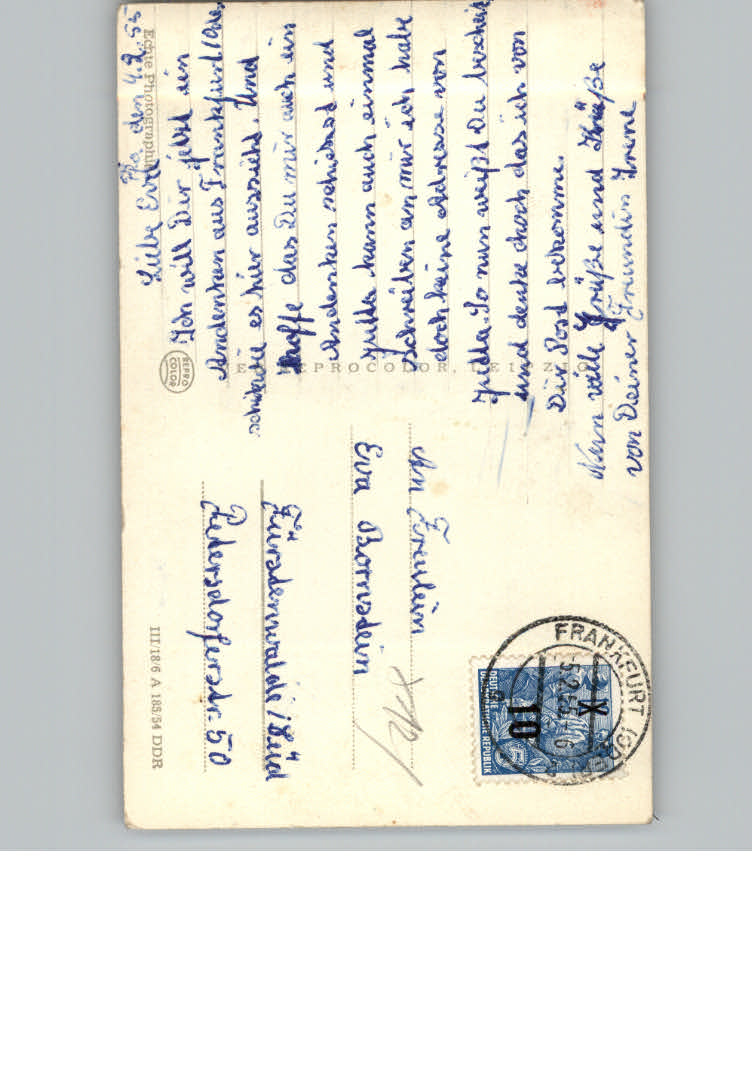 Ffo, den 4.2.55
Liebe Evi!
Ich will Dir jetzt ein
Andenken aus Frankfurd/Oder
schik wie es hir aussieht. Und
hoffe das Du mir auch ein
Andenken schickst und
Jutta kann auch einmal
schreiben an mir ich habe
doch keine Adresse von
Jutta. So nun weißt Du bescheid
und denke doch das ich von
Dir Post bekomme.
Nun viele Grüße und Küße
von Deiner Freundin Irene
An Freulein
Eva Bornstein
Fürstenwalde/Süd
Petersdorferstr. 50
Echte Photographie
REPRO COLOR
REPROCOLOR, LEIPZIG
III/18/6 A 185/54 DDR
DEUTSCHE
DEMOKRATISCHE REPUBLIK
10
X X
FRANKFURT (ODER)
5.2.55